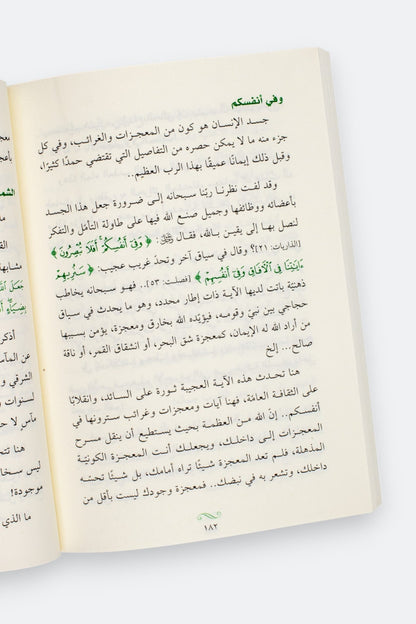 وفي أنفسكم
جسد الإنسان هو كون من المعجزات والغرائب، وفي كل
جزء منه ما لا يمكن حصره من التفاصيل التي تقتضي حمدًا كثيرًا،
وقبل ذلك إيمانًا عميقًا بهذا الرب العظيم..
وقد لفت نظرنا ربّنا سبحانه إلى ضرورة جعل هذا الجسد
بأعضائه ووظائفها وجميل صنع الله فيها على طاولة التأمّل والتفكّر
لنصل بها إلى يقين بـالله، فقـال ﷻ: ﴿وَفِي أَنفُسِكُمْ أَفَلَا تُبْصِرُونَ﴾
[الذاريات: ٢١]؟ وقال في سياق آخر وتحدّ غريب عجيب: ﴿سَنُرِيهِمْ
ءَايَتِنَا فِي الْآفَاقِ وَفِي أَنفُسِهِمْ﴾ [فصلت: ٥٣].. فهـو سبحانه يخاطب
ذهنيّة باتت لديها الآية ذات إطار محدد، وهو ما يحدث في سياق
حجاجي بين نبيّ وقومـه، فيؤيّده الله بخارق ومعجزة، يؤمن بسببها
من أراد الله له الإيمان، كمعجزة شق البحر، أو انشقاق القمر، أو ناقة
صالح... إلخ
هنا تحـدث هذه الآيـة العجيبة ثـورة على السـائد، وانقلابًا
على الثقافـة العامّة، فهنـا آيات ومعجـزات وغرائب سـترونها في
أنفسكم.. إنّ الله مـن العظمـة بحيث يستطيـع أن ينقل مسـرح
المعجـزات إلـى داخلـك، ويجعلـك أنـت المعجـزة الكونيّـة
المذهلة، فلـم تعد المعجزة شـيئًا تراه أمامك، بل شـيئًا تحسّـه
داخلك، وتشعر به في نبضك.. فمعجزة وجودك ليست بأقل من
١٨٢
الشم
ما
القم
مشابهـ
أذكر
عن المآس
الشرقي و
لسنوات ا
مآس لا ح
هنا تتح
ليس سخـا
موجودة!
ما الذي